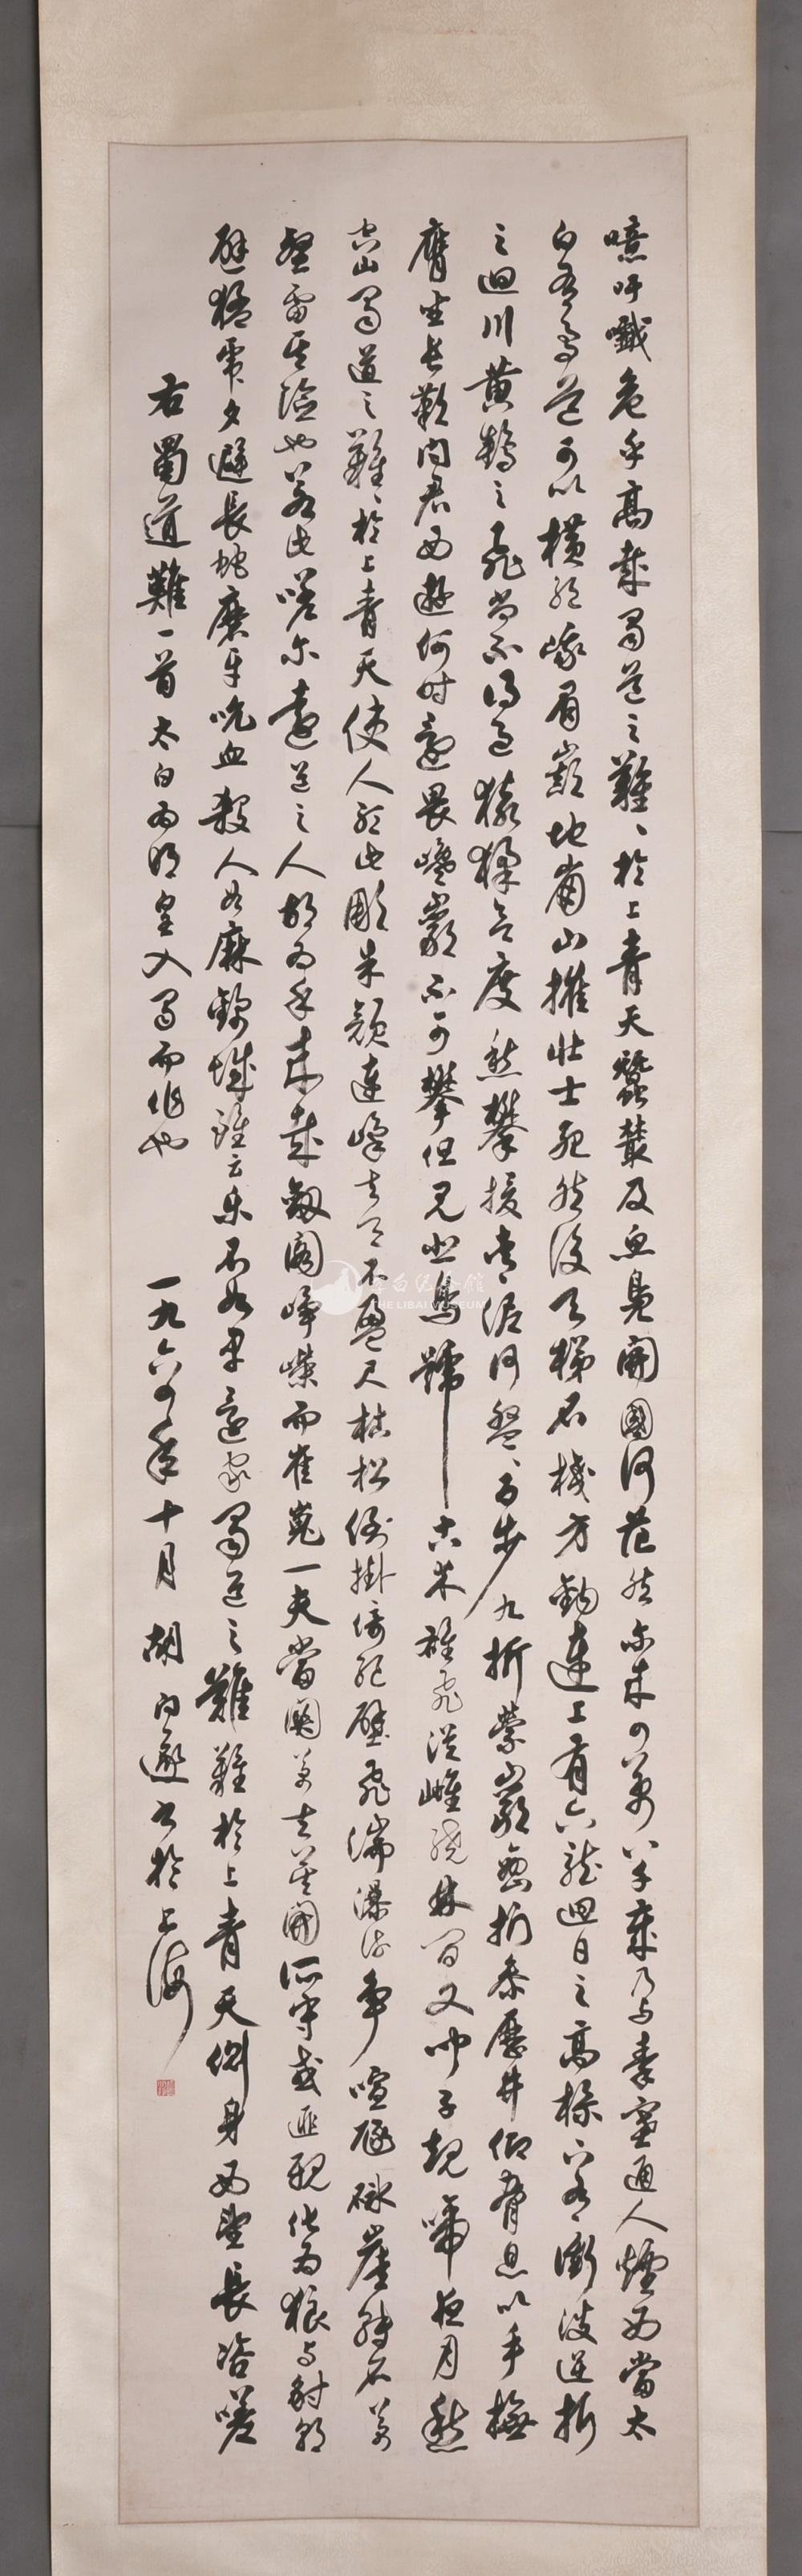 噫吁嚱危乎高哉蜀道之難難於上青天蠶叢及魚鳧開國何茫然尔來四萬八千歲乃与秦塞通人煙西當太
白有鳥道可以橫絕峨眉巔地崩山摧壯士死然後天梯石棧方鉤連上有六龍迴日之高標下有衝波逆折
之迴川黃鶴之飛尚不得過猿猱欲度愁攀援青泥何盤盤百步九折縈巖巒捫參歷井仰脅息以手撫
膺坐長歎問君西遊何時還畏巉巖不可攀但見悲鳥號古木雄飛從雌繞林間又聞子規啼夜月愁
空山蜀道之難難於上青天使人聽此凋朱顏連峰去天不盈尺枯松倒掛倚絕壁飛湍瀑流爭喧豗砯崖轉石萬
壑雷其險也若此嗟尔遠道之人胡為乎來哉劍閣崢嶸而崔嵬一夫當關萬夫莫開所守或匪親化為狼与豺朝
避猛虎夕避長蛇磨牙吮血殺人如麻錦城雖云樂不如早還家蜀道之難難於上青天側身西望長咨嗟
右蜀道難一首太白為明皇入蜀而作也 一九六四年十月 胡问遂书於上海
李白纪念馆
THE LIBAI MUSEUM